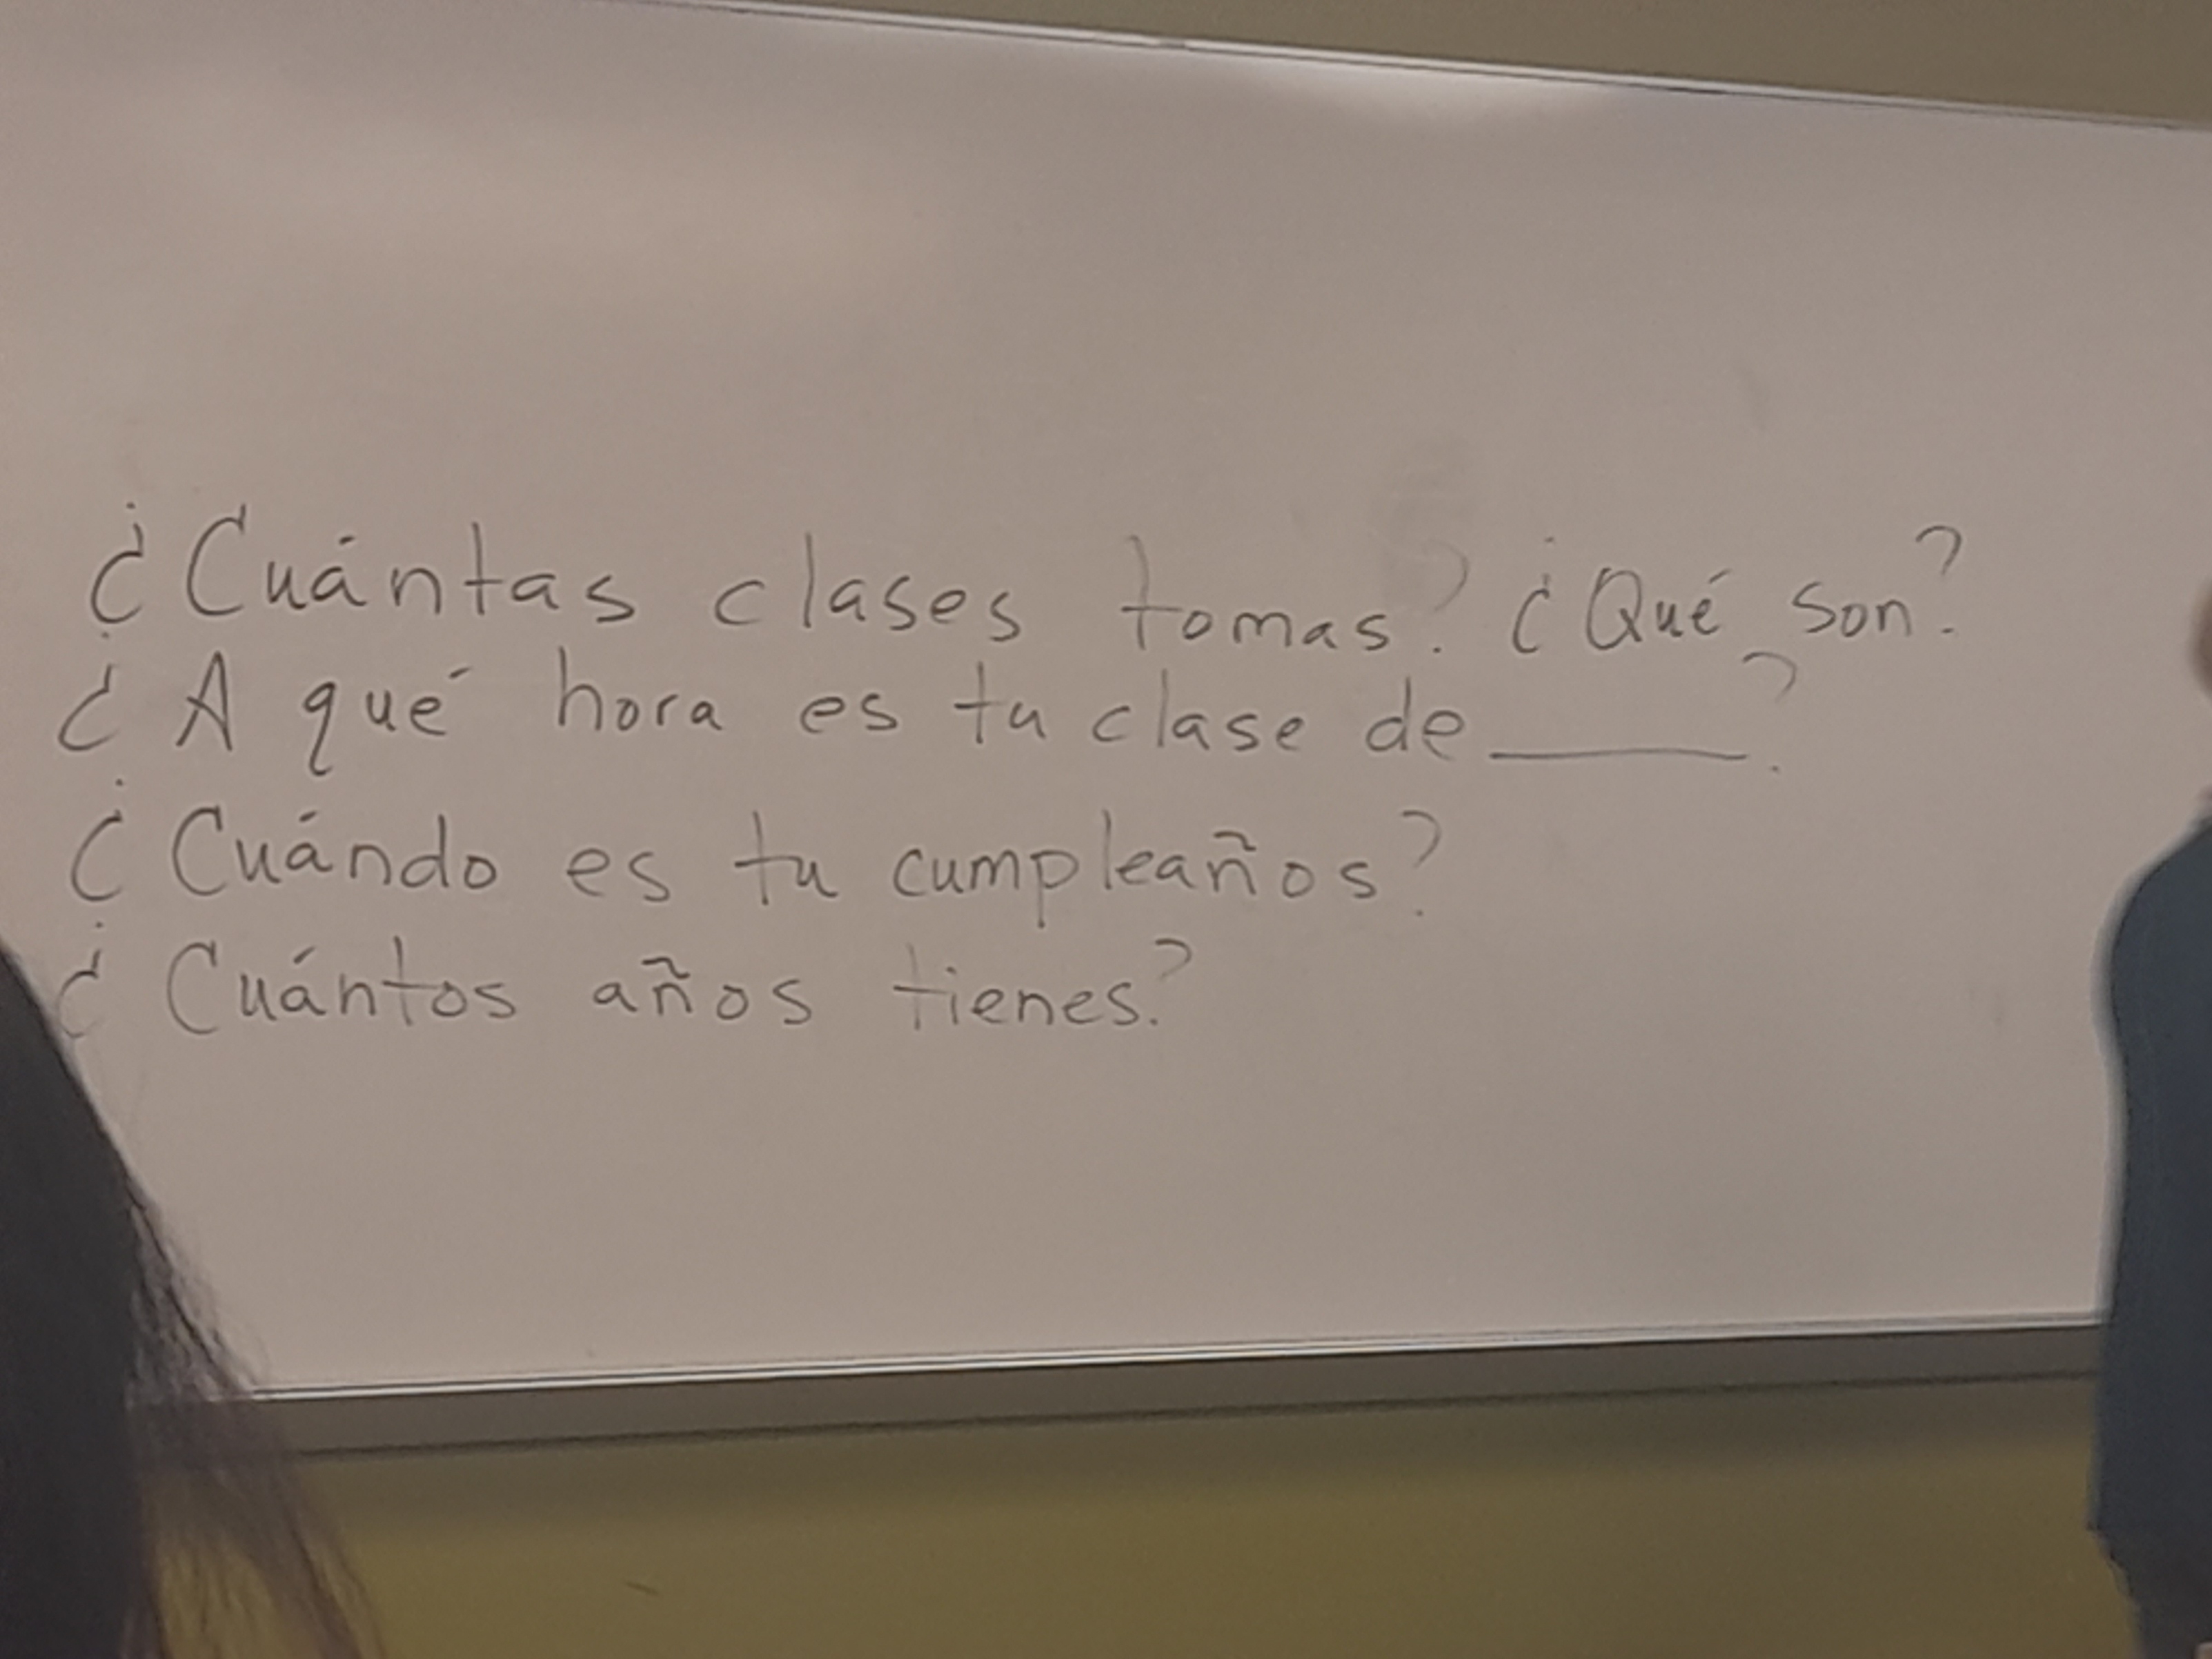 ¿Cuántas clases tomas? ¿Qué son?
¿A qué hora es tu clase de ____?
¿Cuándo es tu cumpleaños?
¿Cuántos años tienes?